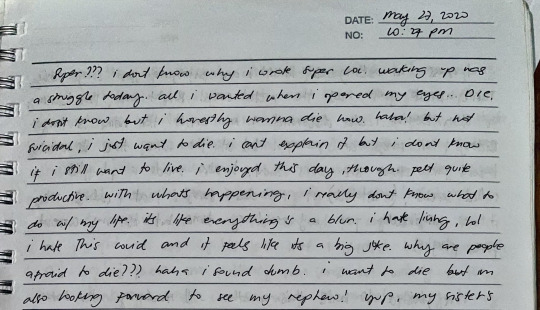 DATE: may 27, 2020
NO: 10:27 pm
Super??? i dont know why i wrote super lol. waking up was
a struggle today. all i wanted when i opened my eyes.. DIE.
i dont know but i honestly wanna die now. haha! but not
suicidal, i just want to die. i cant explain it but i dont know
if i still want to live. i enjoyed this day, though. felt quite
productive. with whats happening, i really dont know what to
do w/ my life. its like everything's a blur. i hate living, lol
i hate this covid and it feels like its a big joke. why are people
afraid to die??? haha i sound dumb. i want to die but im
also looking forward to see my nephew! yup, my sister's